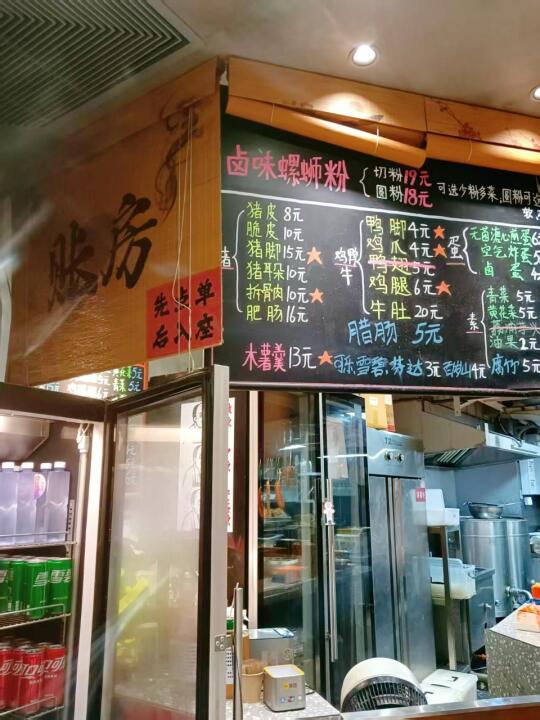 账房
先点单
后入座
卤味螺蛳粉
切粉19元
圆粉18元
可选少粉多菜,圆粉可
猪皮 8元
脆皮 10元
猪脚 15元★
猪耳朵 10元
折骨肉 10元★
肥肠 16元
鸡鸭牛
鸭脚 4元★
鸡爪 4元★
鸭翅 5元
鸡腿 6元★
牛肚 20元
蛋
无菌溏心煎蛋6
空气炸蛋5
卤蛋4
素
青菜 5元
黄花菜 5元
油果 2元
腐竹 5元
腊肠 5元
木薯羹 13元★
可乐雪碧芬达3元
4元
雪碧